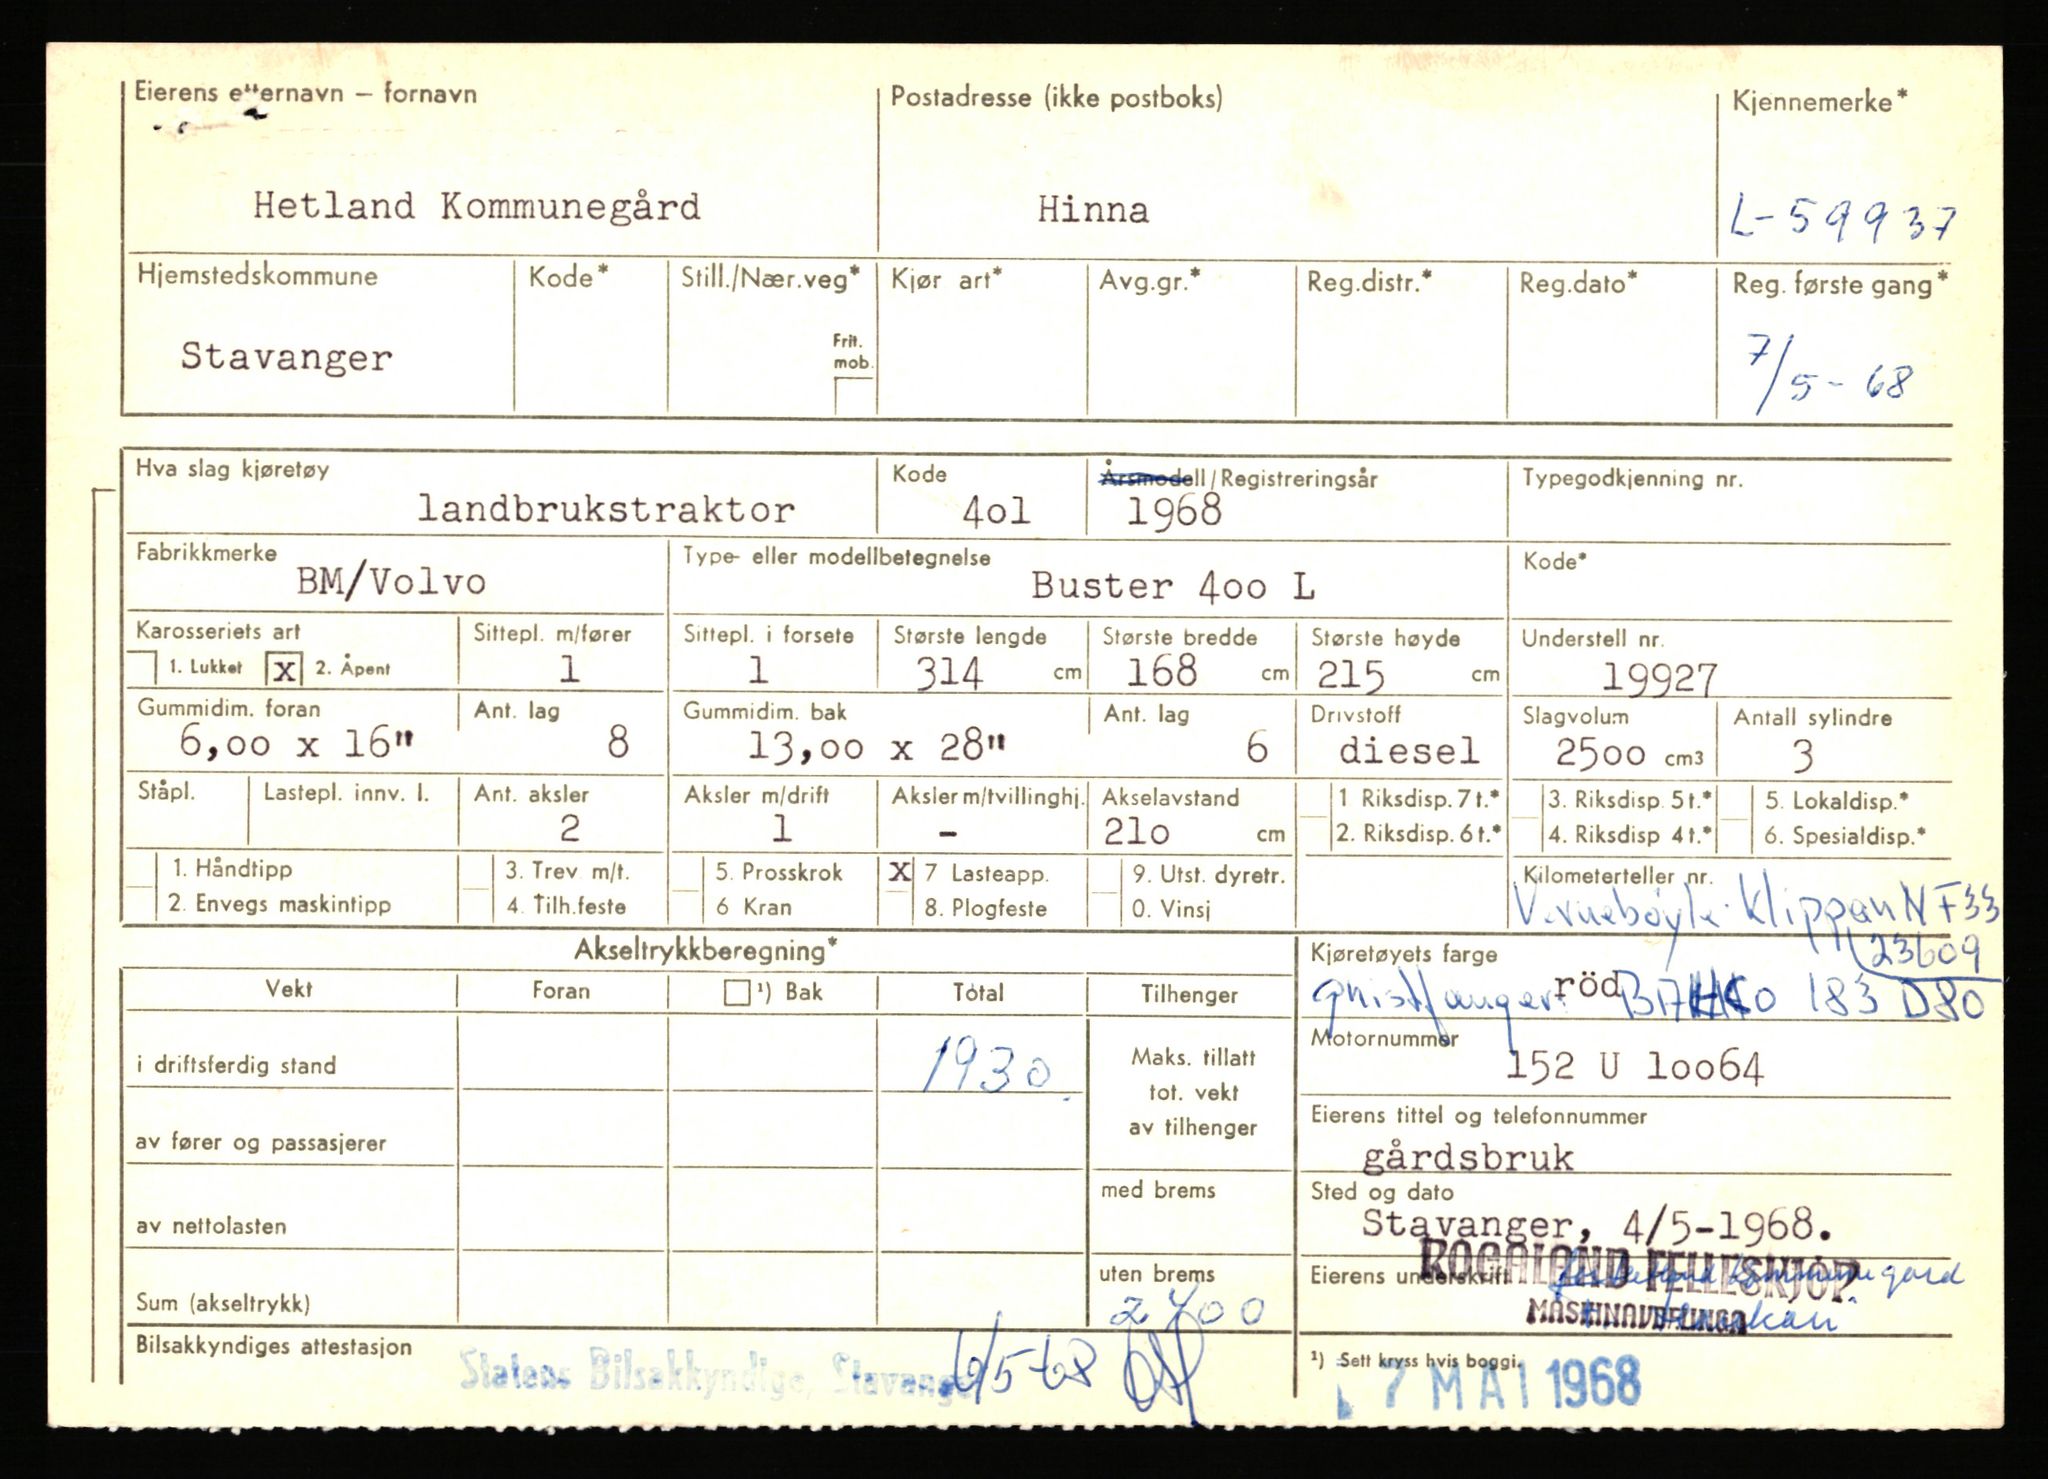 Eierens etternavn – fornavn Postadresse (ikke postboks) Kjennemerke*
Hetland Kommunegård Hinna L-59937
Hjemstedskommune Kode* Still./Nær.veg* Kjør art* Avg.gr.* Reg.distr.* Reg.dato* Reg. første gang*
Stavanger Frit. mob. 7/5-68
Hva slag kjøretøy Kode Årsmodell/Registreringsår Typegodkjenning nr.
landbrukstraktor 4o1 1968
Fabrikkmerke Type- eller modellbetegnelse Kode*
BM/Volvo Buster 4oo L
Karosseriets art Sittepl. m/fører Sittepl. i forsete Største lengde Største bredde Største høyde Understell nr.
1. Lukket X 2. Åpent 1 1 314 cm 168 cm 215 cm 19927
Gummidim. foran Ant. lag Gummidim. bak Ant. lag Drivstoff Slagvolum Antall sylindre
6,oo x 16" 8 13,oo x 28" 6 diesel 25oo cm3 3
Ståpl. Lastepl. innv. l. Ant. aksler Aksler m/drift Aksler m/tvillinghj. Akselavstand 1 Riksdisp. 7 t.* 3. Riksdisp. 5 t.* 5. Lokaldisp.*
2 1 - 21o cm 2. Riksdisp. 6 t.* 4. Riksdisp 4 t.* 6. Spesialdisp.*
1. Håndtipp 3. Trev m/t. 5. Prosskrok X 7 Lasteapp. 9. Utst. dyretr. Kilometerteller nr.
2. Envegs maskintipp 4. Tilh.feste 6 Kran 8. Plogfeste 0. Vinsj Vernebøyle Klippan N F33
Akseltrykkberegning* Kjøretøyets farge 23609
Vekt Foran ¹) Bak Total Tilhenger röd gnistfanger: BAHCO 183 D80
Motornummer
i driftsferdig stand 1930 Maks. tillatt tot. vekt av tilhenger 152 U 1oo64
Eierens tittel og telefonnummer
av fører og passasjerer gårdsbruk
med brems Sted og dato
av nettolasten Stavanger, 4/5-1968.
ROGALAND FELLESKJØP
uten brems Eierens underskrift Kommunegård
Sum (akseltrykk) 2400 MASKINAVDELINGA
Bilsakkyndiges attestasjon Statens Bilsakkyndige, Stavanger 6/5-68 ¹) Sett kryss hvis boggi.
7 MAI 1968